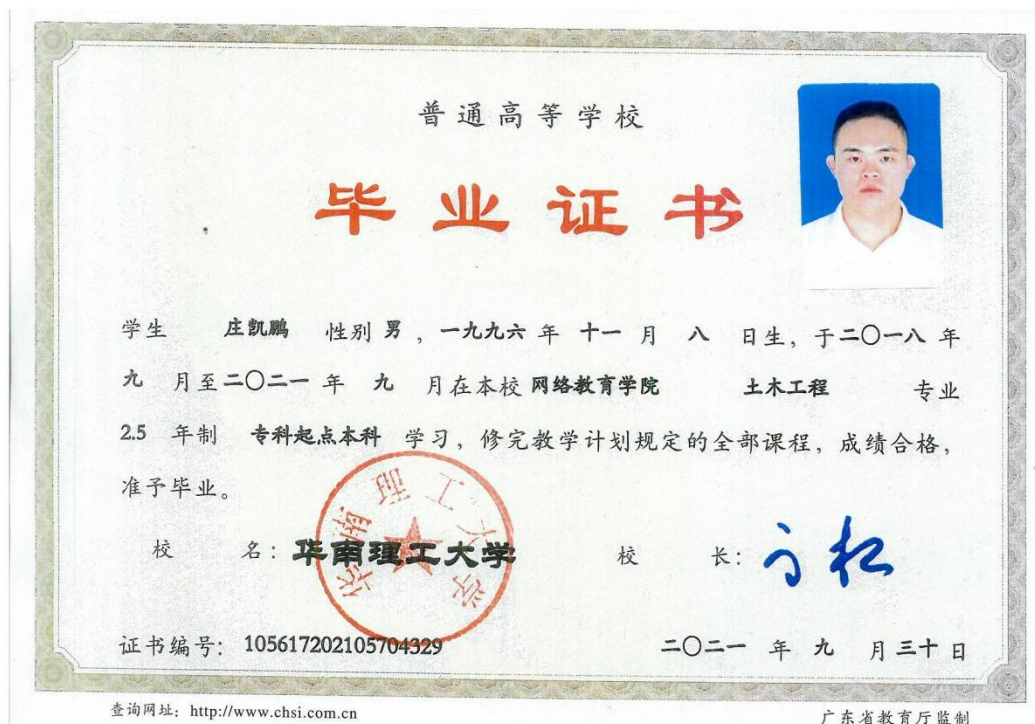 普通高等学校
毕业证书
学生 庄凯鹏 性别 男 ，一九九六 年 十一 月 八 日生，于二〇一八 年
九 月至二〇二一 年 九 月在本校 网络教育学院 土木工程 专业
2.5 年制 专科起点本科 学习，修完教学计划规定的全部课程，成绩合格，
准予毕业。
华南理工大学
校 名：华南理工大学 校 长：
证书编号：105617202105704329 二〇二一 年 九 月 三十 日
查询网址：http://www.chsi.com.cn 广东省教育厅监制